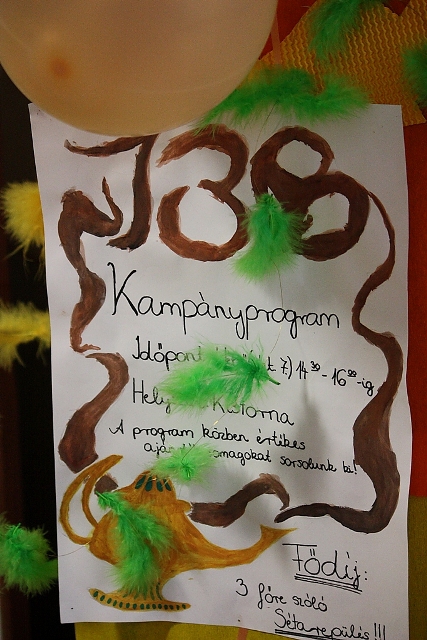 J38
Kampányprogram
Időpont 7.) 14³⁰-16⁰⁰-ig
Hely Katorna
A program közben értikes
csomagokat sorsolunk ki!
Fődíj:
3 főre szóló
Sétarepülés!!!